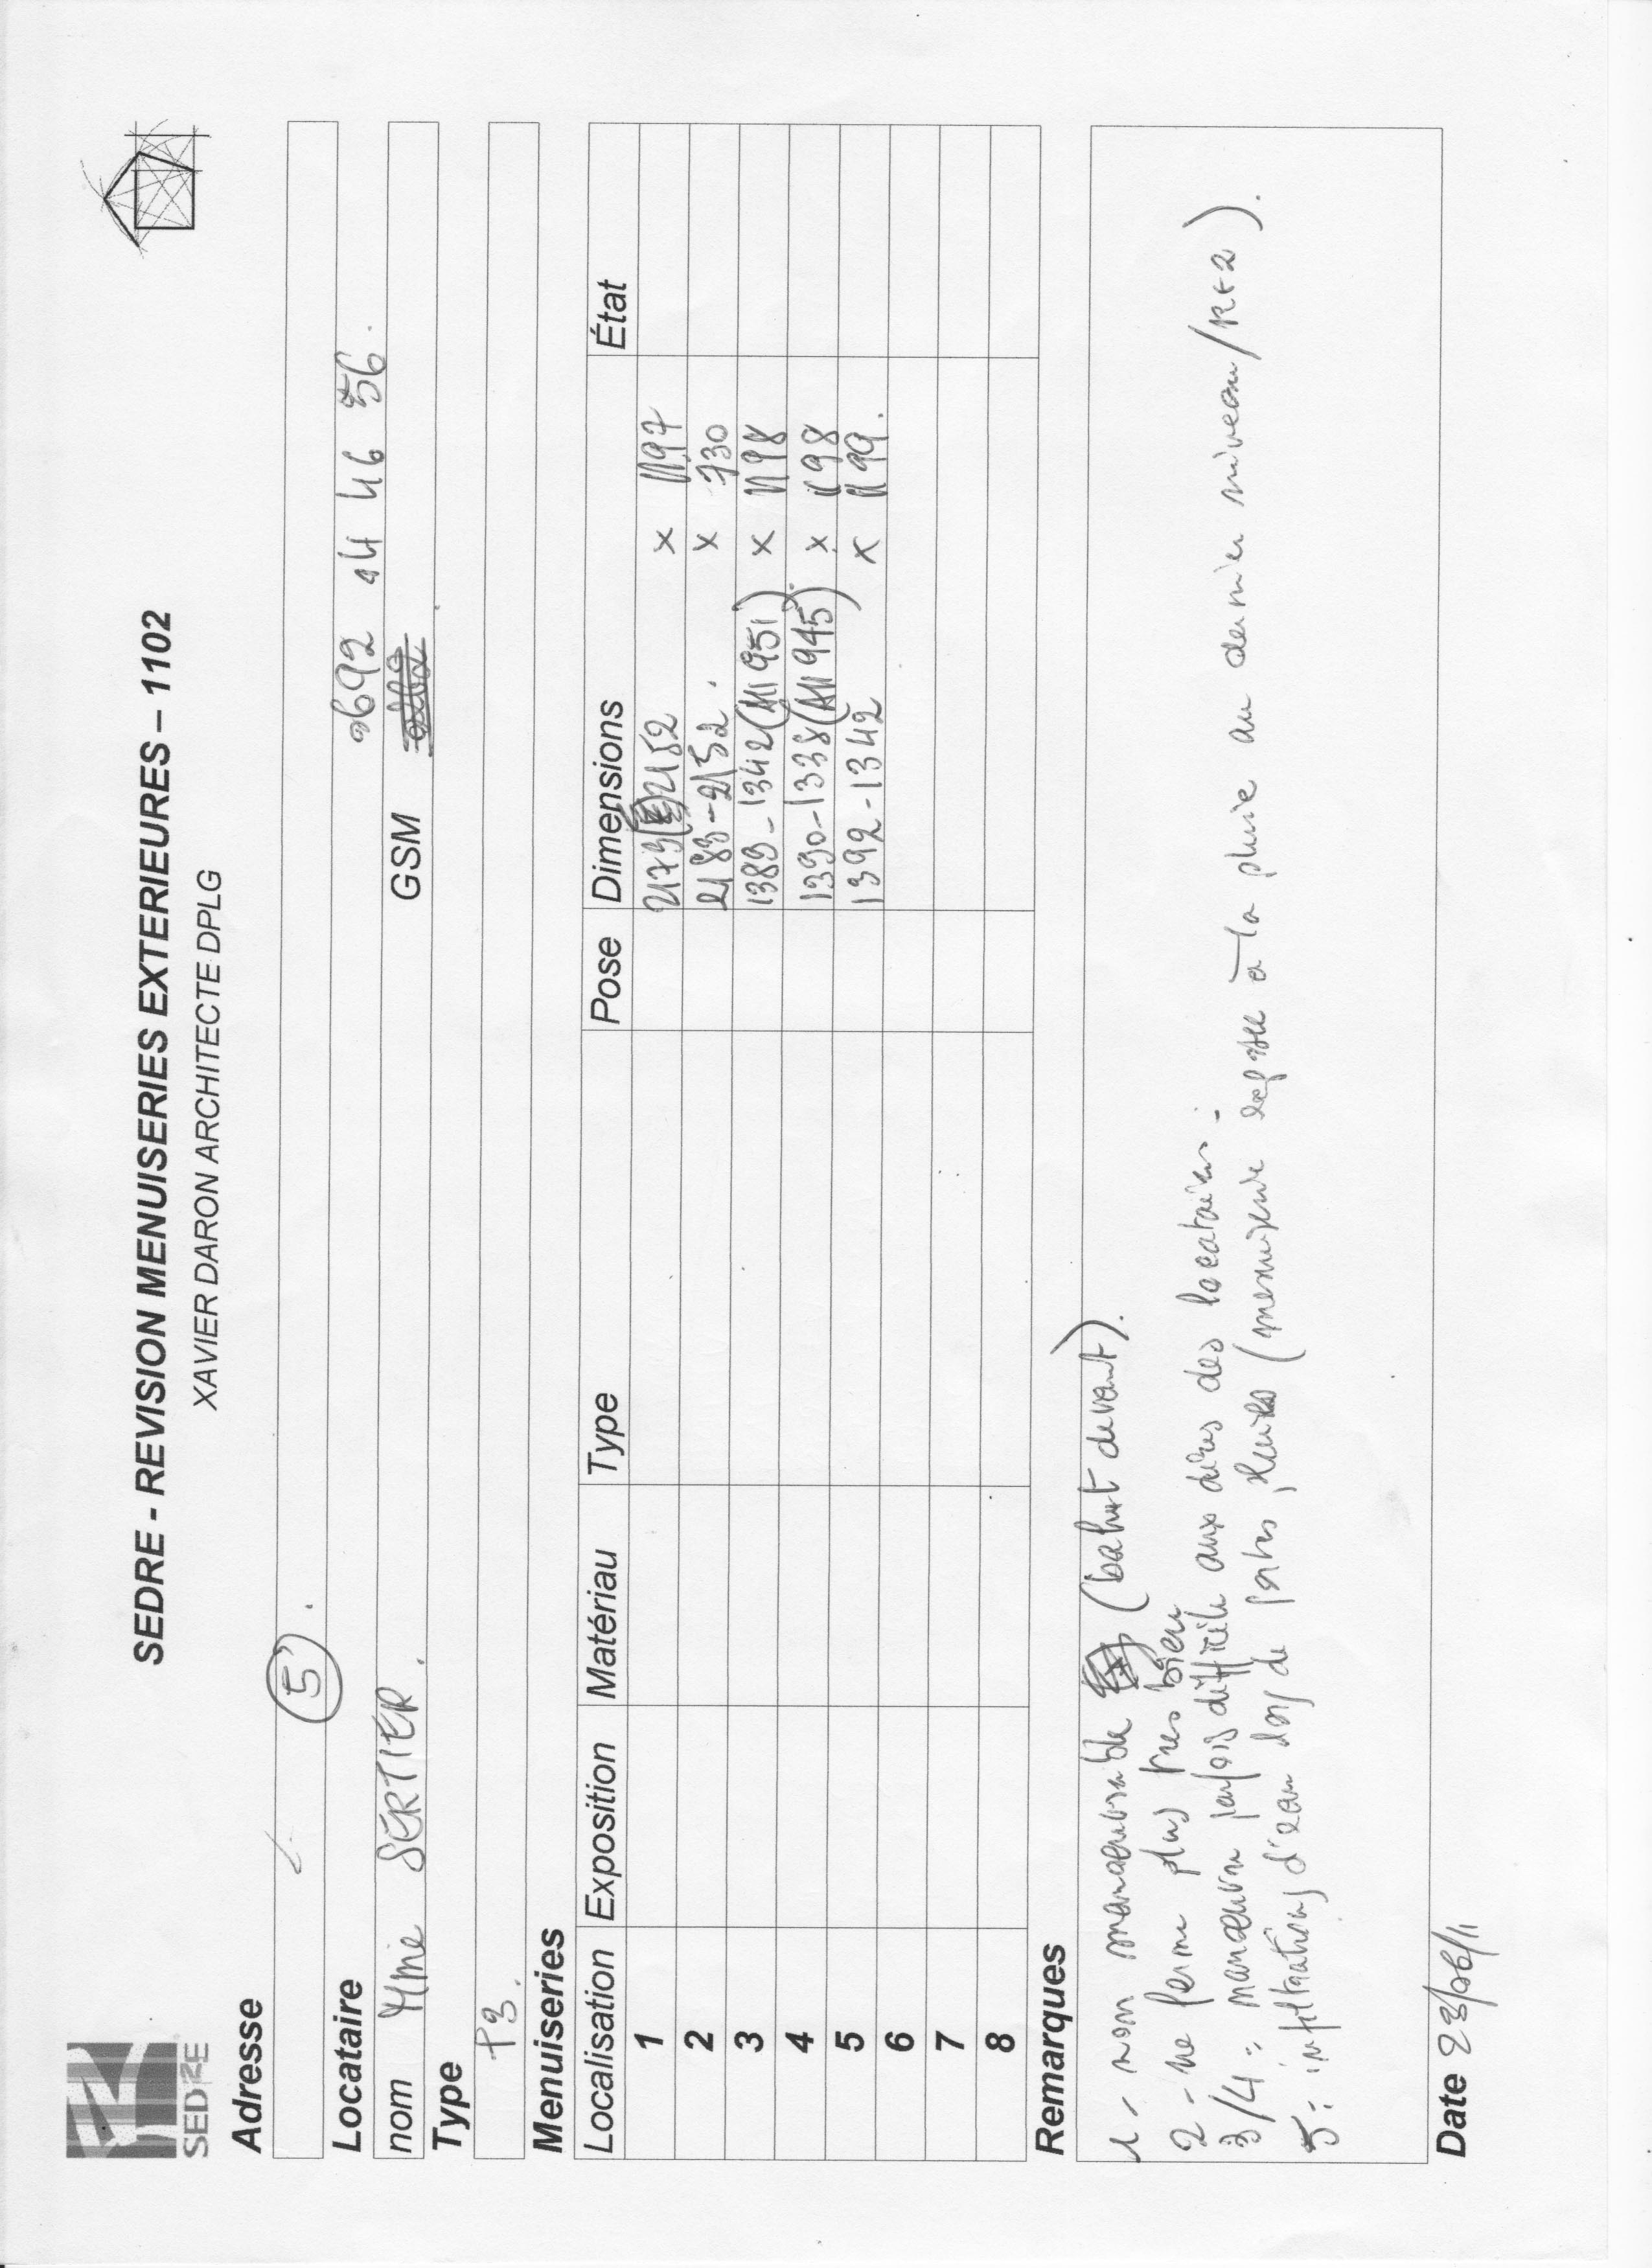 SEDRE
SEDRE - REVISION MENUISERIES EXTERIEURES – 1102
XAVIER DARON ARCHITECTE DPLG
Adresse
5
Locataire
0692 14 46 56.
nom Mme SERTIER. GSM
Type
T3.
Menuiseries
Localisation Exposition Matériau Type Pose Dimensions État
1 2179 2152 x 1197
2 2183-2152. x 730
3 1389-1342 (All 951) x 1198
4 1390-1338 (All 945) x 1198
5 1392-1342 x 1199.
6
7
8
Remarques
1 - non manoeuvrable (bahut devant).
2 - ne ferme plus très bien
3/4: manoeuvre parfois difficile aux dires des locataires.
5: infiltrations d'eau lors de fortes pluies (menuiserie exposée à la pluie au dernier niveau/R+2).
Date 23/06/11